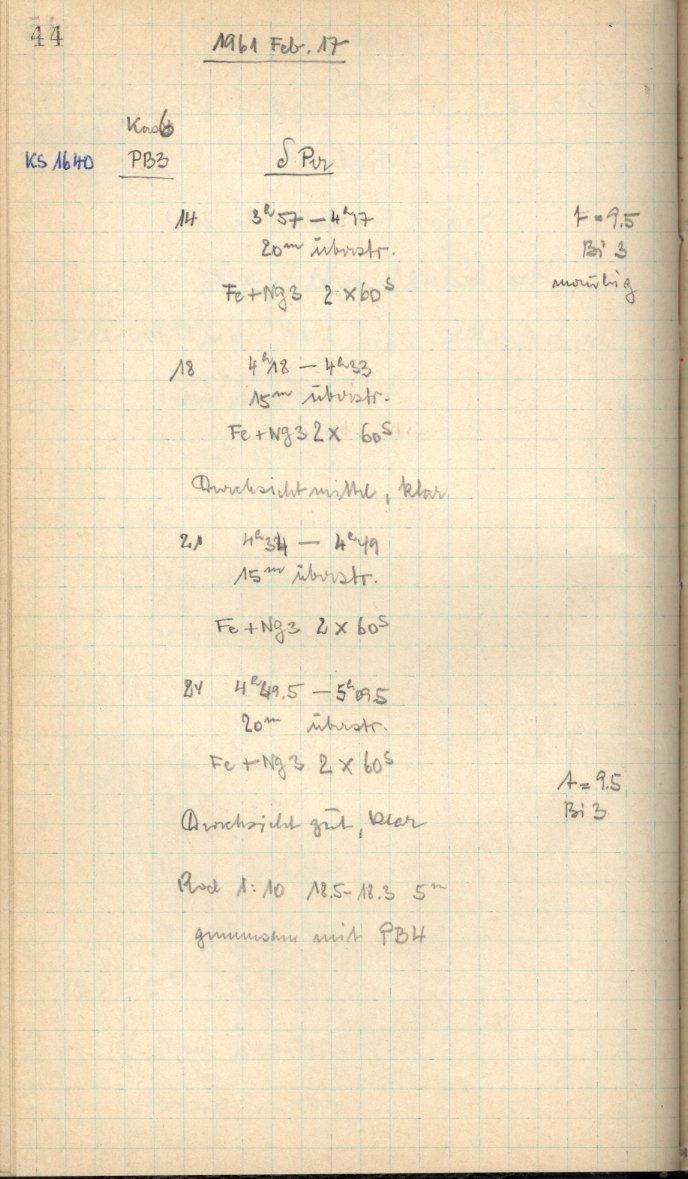 44
1961 Feb. 17
Kas6
KS 1640 PB3 δ Per
14 3h57 – 4h17 t = 9.5
20m überstr. Bi 3
Fe+Ng3 2 x 60s unruhig
18 4h18 – 4h33
15m überstr.
Fe+Ng3 2 x 60s
Durchsicht mittel, klar
21 4h34 – 4h49
15m überstr.
Fe+Ng3 2 x 60s
24 4h49.5 – 5h09.5
20m überstr.
Fe+Ng3 2 x 60s
t = 9.5
Bi 3
Durchsicht gut, klar
Rod 1:10 18.5–18.3 5m
gemeinsam mit PB4